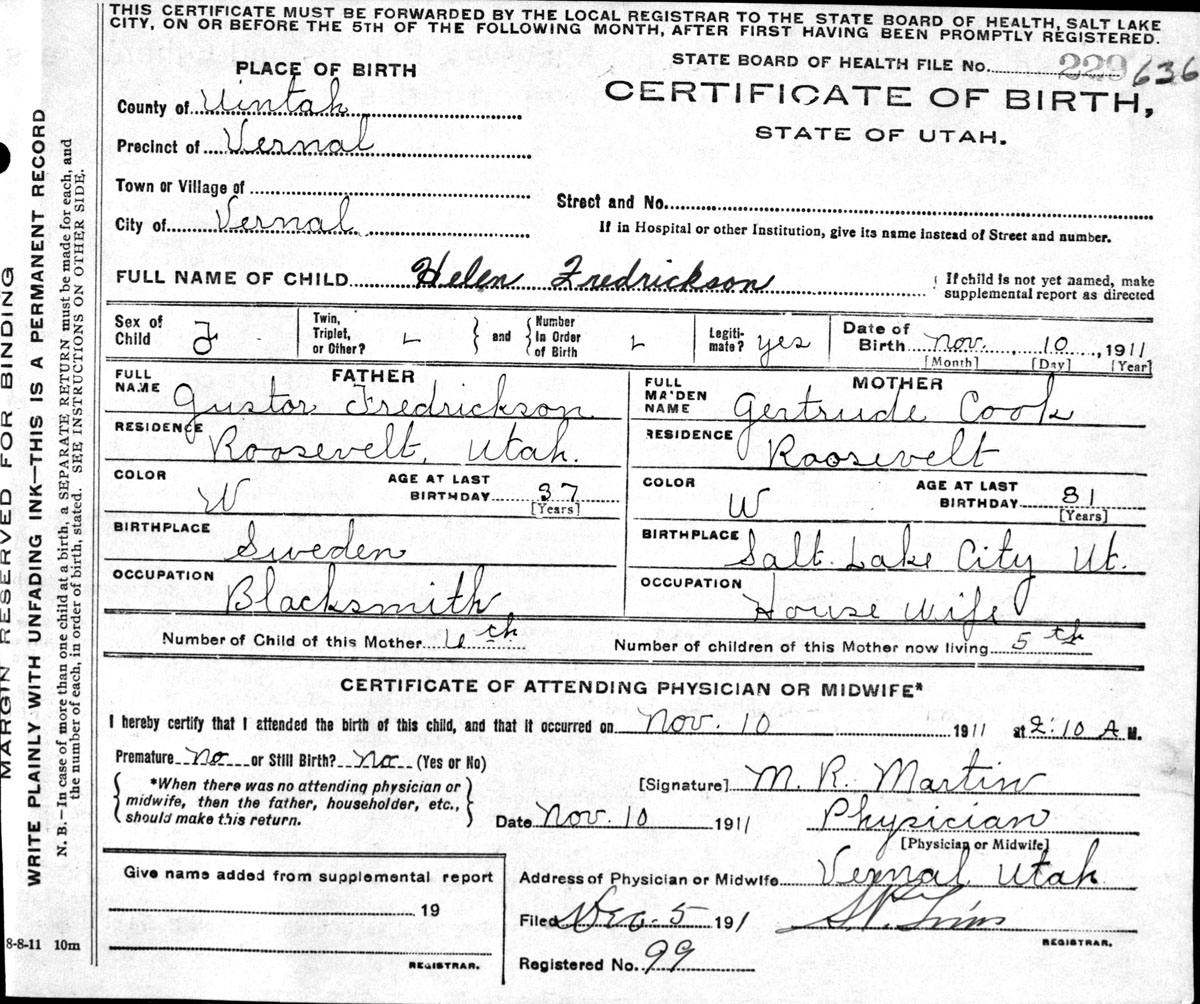 THIS CERTIFICATE MUST BE FORWARDED BY THE LOCAL REGISTRAR TO THE STATE BOARD OF HEALTH, SALT LAKE
CITY, ON OR BEFORE THE 5TH OF THE FOLLOWING MONTH, AFTER FIRST HAVING BEEN PROMPTLY REGISTERED.
STATE BOARD OF HEALTH FILE No. 229 636
CERTIFICATE OF BIRTH,
STATE OF UTAH.
PLACE OF BIRTH
County of Uintah
Precinct of Vernal
Town or Village of
City of Vernal
Street and No.
If in Hospital or other Institution, give its name instead of Street and number.
FULL NAME OF CHILD Helen Fredrickson
If child is not yet named, make
supplemental report as directed
Sex of Child F
Twin, Triplet, or Other?
and
Number in Order of Birth
Legitimate? yes
Date of Birth Nov. 10, 1911
[Month] [Day] [Year]
FATHER
FULL NAME Gustov Fredrickson
RESIDENCE Roosevelt, Utah.
COLOR W AGE AT LAST BIRTHDAY 37
[Years]
BIRTHPLACE Sweden
OCCUPATION Blacksmith
MOTHER
FULL MAIDEN NAME Gertrude Cook
RESIDENCE Roosevelt
COLOR W AGE AT LAST BIRTHDAY 31
[Years]
BIRTHPLACE Salt Lake City Ut.
OCCUPATION House Wife
Number of Child of this Mother 6th
Number of children of this Mother now living 5th
CERTIFICATE OF ATTENDING PHYSICIAN OR MIDWIFE*
I hereby certify that I attended the birth of this child, and that it occurred on Nov. 10 1911 at 2:10 A M.
Premature No or Still Birth? No (Yes or No)
*When there was no attending physician or
midwife, then the father, householder, etc.,
should make this return.
[Signature] M. R. Martin
Date Nov. 10 1911 Physician
[Physician or Midwife]
Address of Physician or Midwife Vernal Utah
Give name added from supplemental report
19
REGISTRAR.
Filed Dec. 5 191
REGISTRAR.
Registered No. 99
8-8-11 10m
MARGIN RESERVED FOR BINDING
WRITE PLAINLY WITH UNFADING INK—THIS IS A PERMANENT RECORD
N. B.—In case of more than one child at a birth, a SEPARATE RETURN must be made for each, and
the number of each, in order of birth, stated. SEE INSTRUCTIONS ON OTHER SIDE.